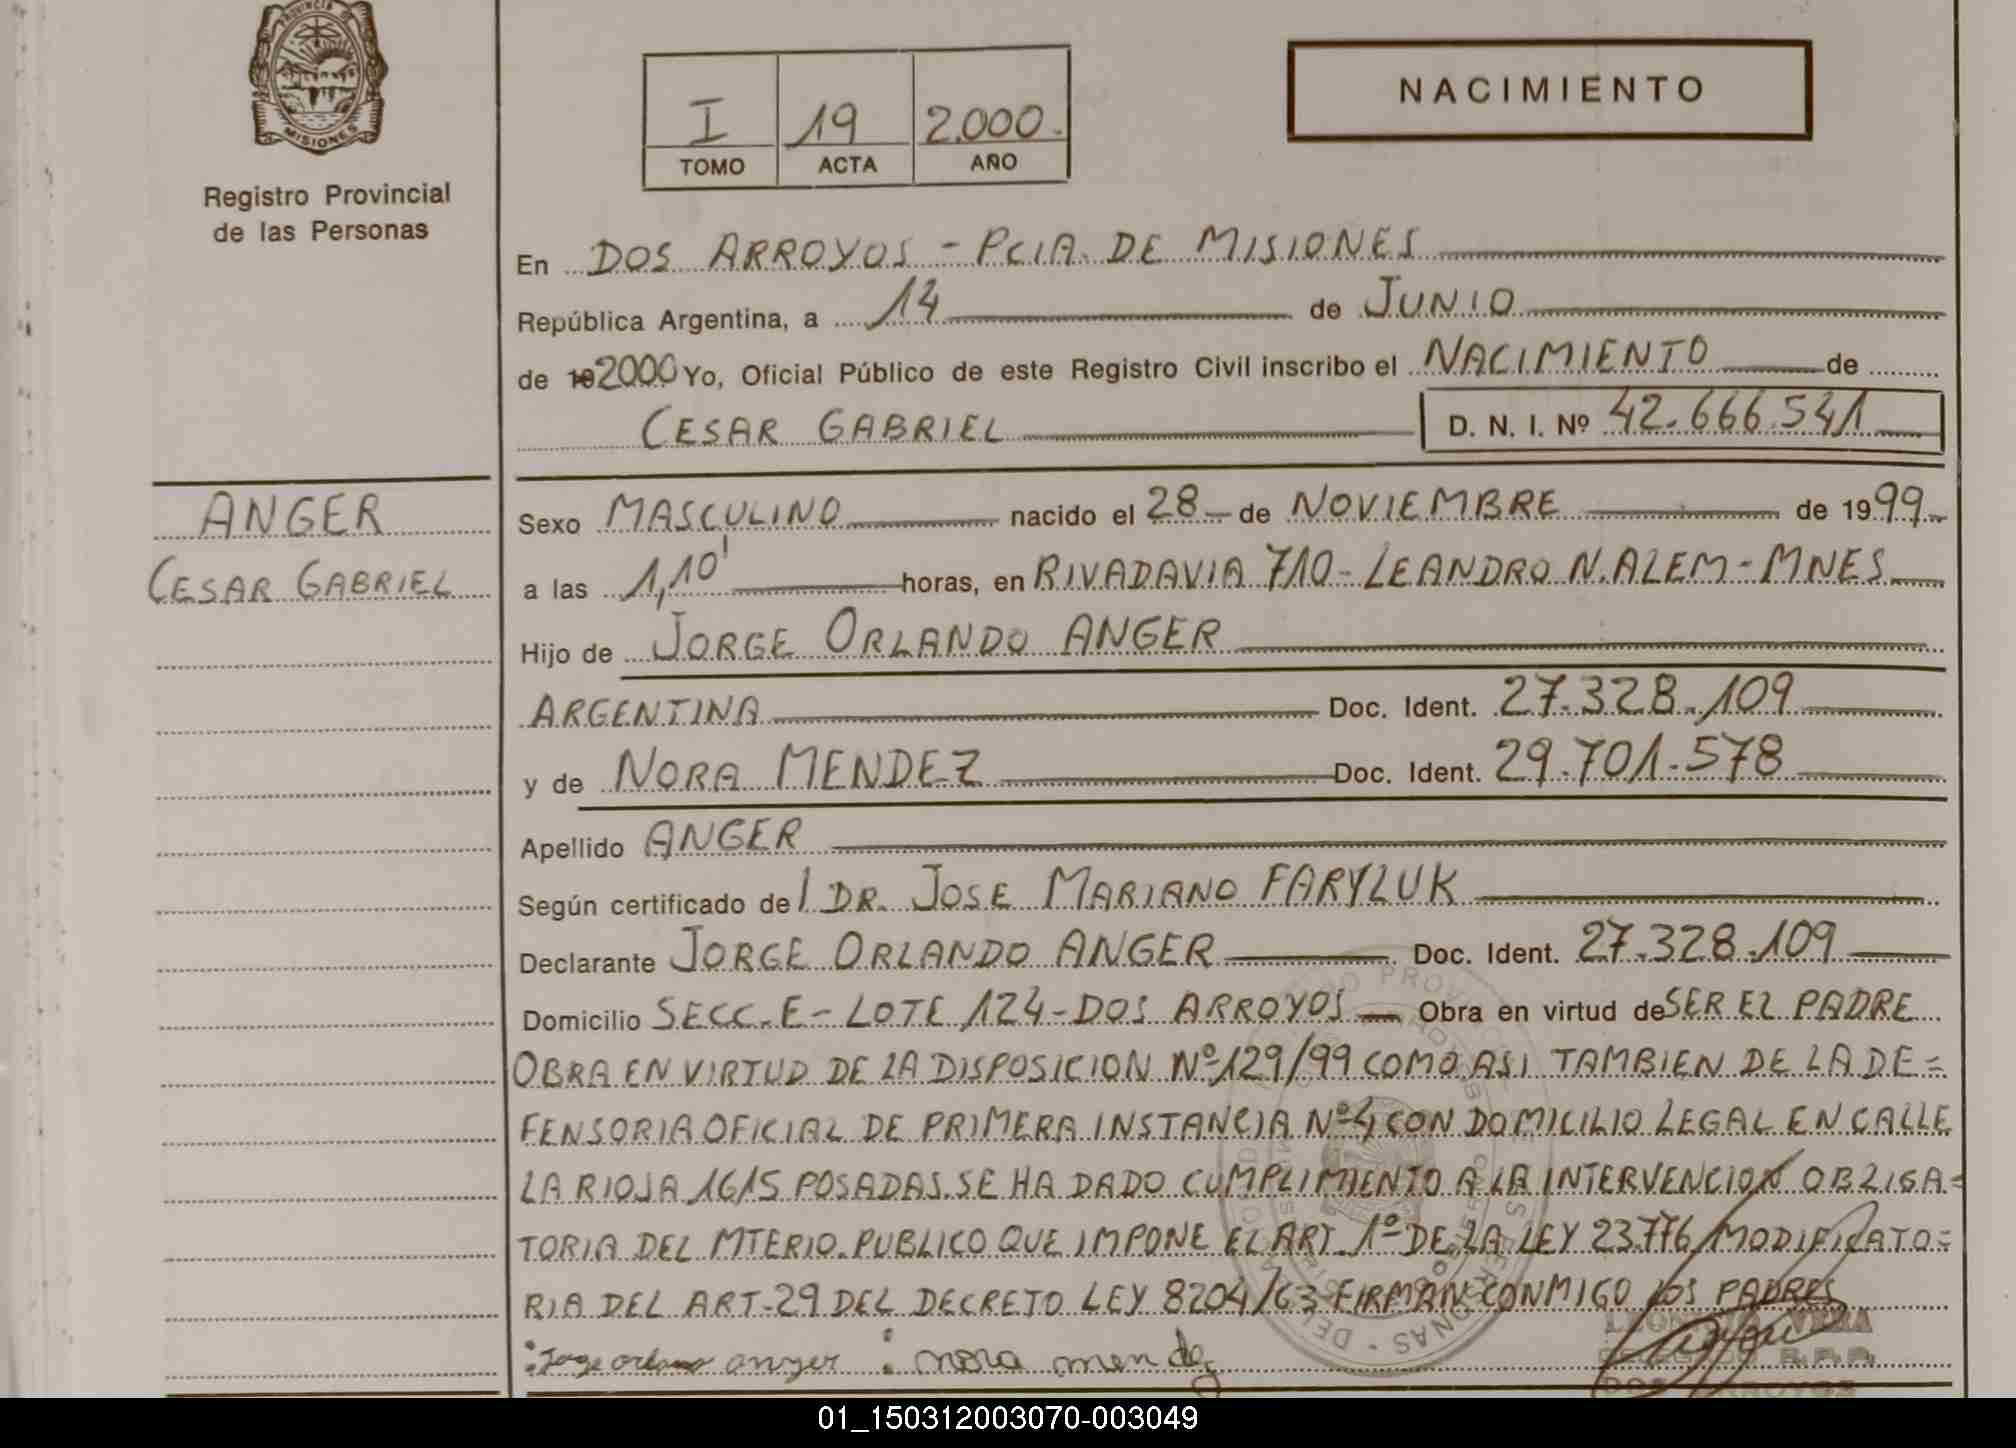 PROVINCIA DE
MISIONES
Registro Provincial
de las Personas
I 19 2.000.
TOMO ACTA AÑO
NACIMIENTO
En DOS ARROYOS - PCIA. DE MISIONES
República Argentina, a 14 de JUNIO
de 19 2000 Yo, Oficial Público de este Registro Civil inscribo el NACIMIENTO de
CESAR GABRIEL D. N. I. Nº 42.666.541
ANGER
CESAR GABRIEL
Sexo MASCULINO nacido el 28 de NOVIEMBRE de 1999
a las 1,10' horas, en RIVADAVIA 710 - LEANDRO N. ALEM - MNES
Hijo de JORGE ORLANDO ANGER
ARGENTINA Doc. Ident. 27.328.109
y de NORA MENDEZ Doc. Ident. 29.701.578
Apellido ANGER
Según certificado del DR. JOSE MARIANO FARYLUK
Declarante JORGE ORLANDO ANGER Doc. Ident. 27.328.109
Domicilio SECC. E - LOTE 124 - DOS ARROYOS Obra en virtud de SER EL PADRE
OBRA EN VIRTUD DE LA DISPOSICION Nº 129/99 COMO ASI TAMBIEN DE LA DE=
FENSORIA OFICIAL DE PRIMERA INSTANCIA Nº 4 CON DOMICILIO LEGAL EN CALLE
LA RIOJA 1615 POSADAS. SE HA DADO CUMPLIMIENTO A LA INTERVENCION OBLIGA=
TORIA DEL MTERIO. PUBLICO QUE IMPONE EL ART. 1º DE LA LEY 23.776 MODIFICATO=
RIA DEL ART. 29 DEL DECRETO LEY 8204/63 FIRMAN CONMIGO LOS PADRES
: Jorge orlando anger : nora mendez
VERA
DOS ARROYOS
01_150312003070-003049